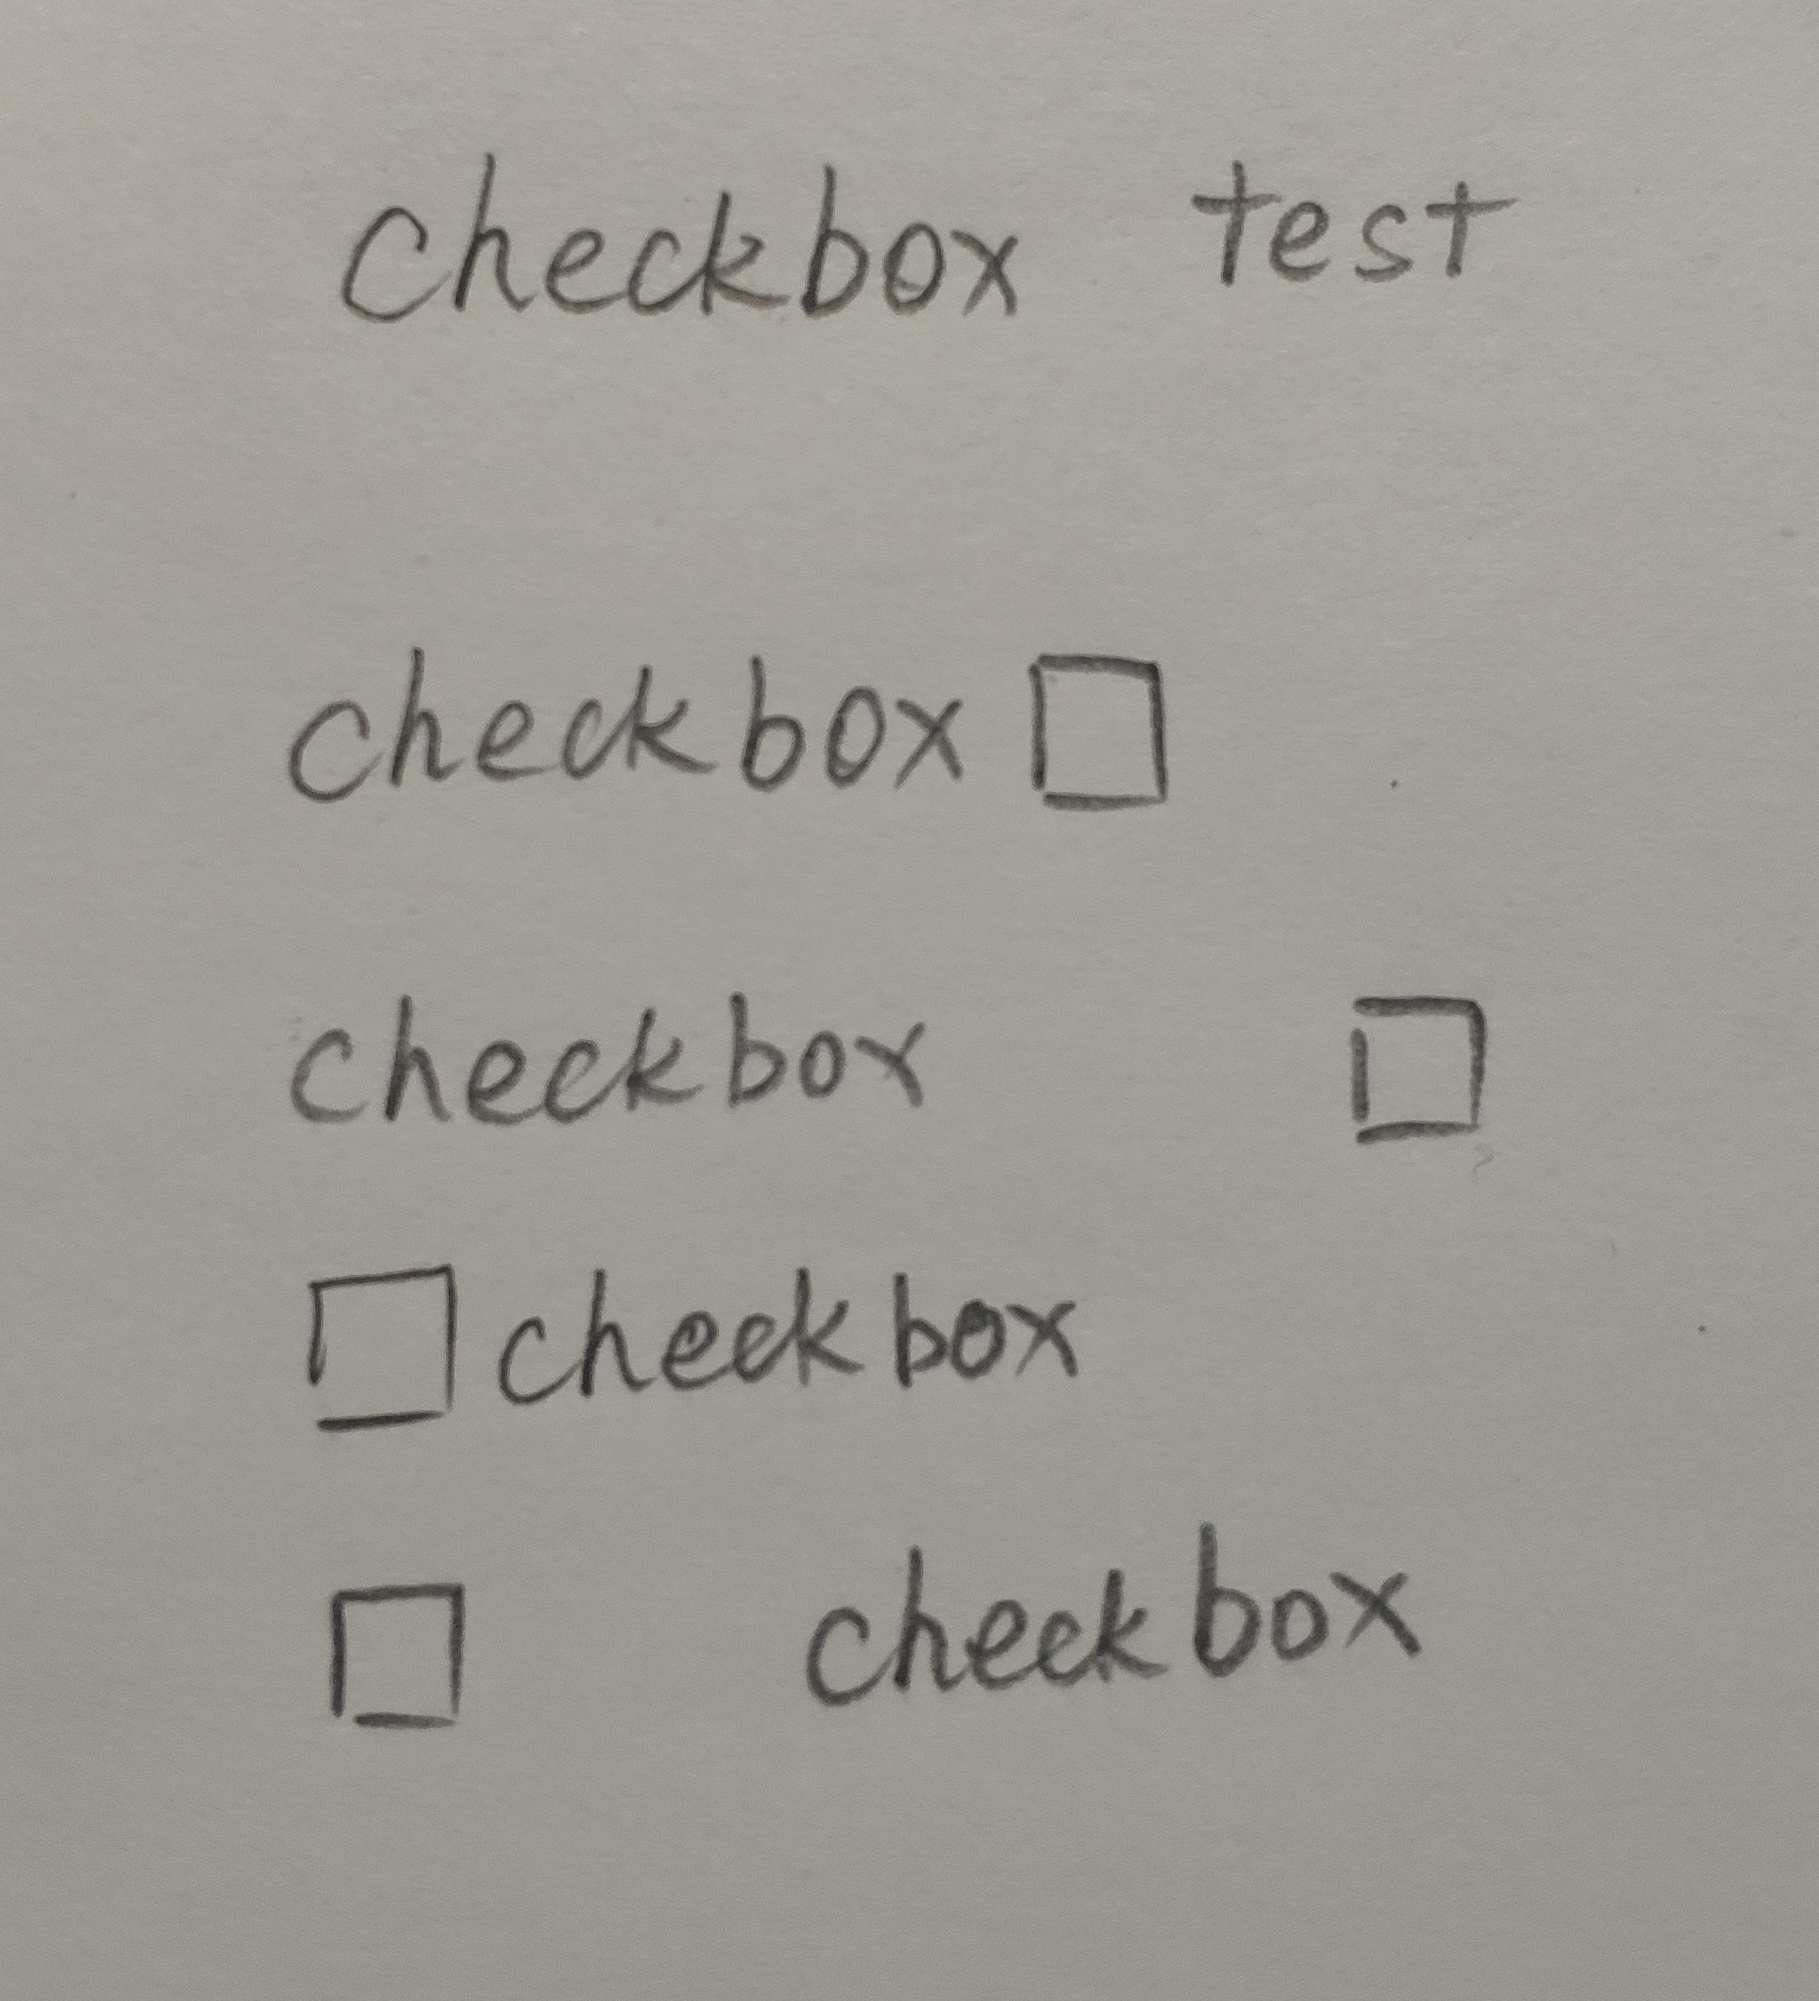 checkbox test
checkbox ☐
checkbox ☐
☐ checkbox
☐ checkbox